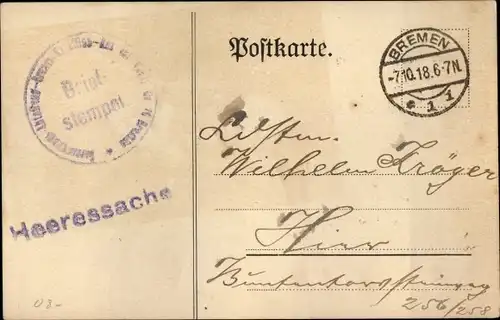 Postkarte.
BREMEN
-7.10.18.6-7N.
* 1 i
Brief-
stempel
Heeressache
Wilhelm Kröger
Hier
Buntentorssteinweg
256/258